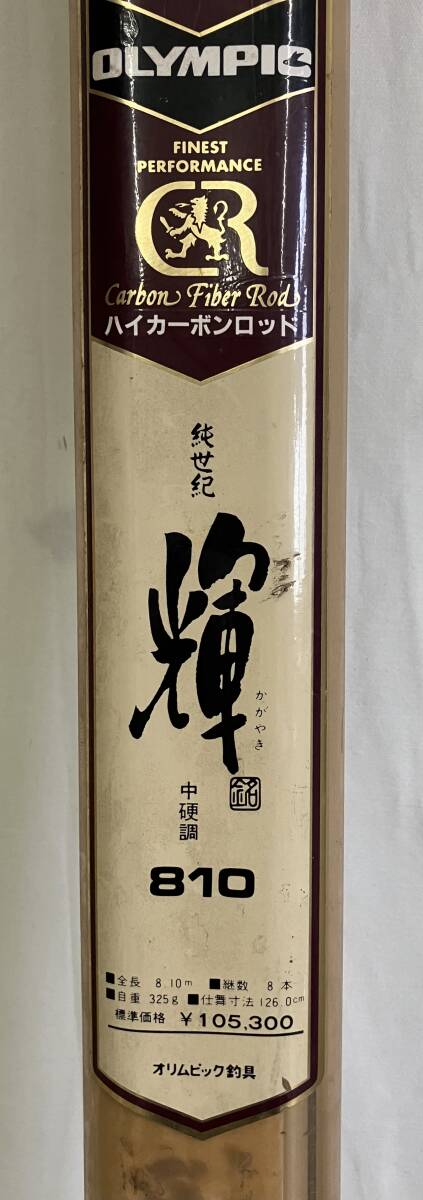 OLYMPIC
FINEST
PERFORMANCE
CR
Carbon Fiber Rod
ハイカーボンロッド
純世紀
輝
かがやき
銘
中硬調
810
■全長 8.10m ■継数 8本
■自重 325g ■仕舞寸法126.0cm
標準価格 ¥105,300
オリムピック釣具